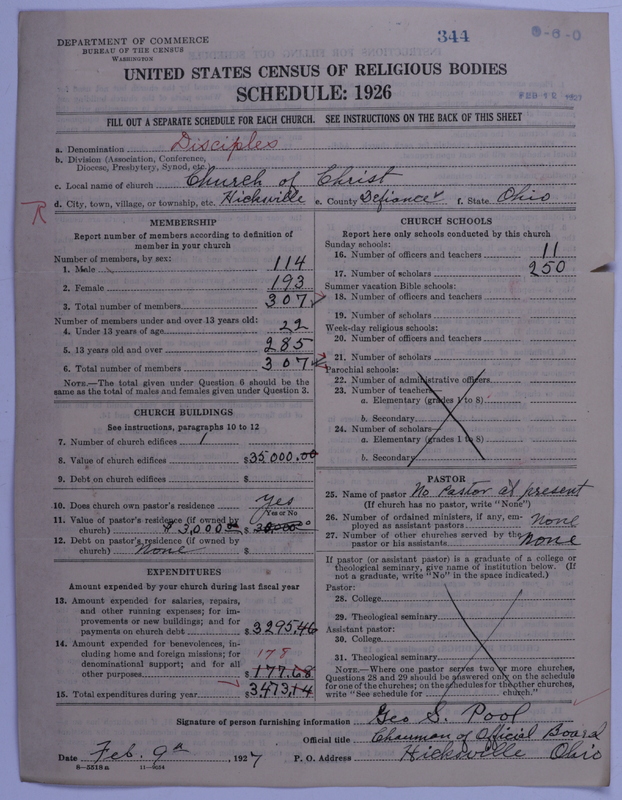 344
DEPARTMENT OF COMMERCE
BUREAU OF THE CENSUS
WASHINGTON
UNITED STATES CENSUS OF RELIGIOUS BODIES
SCHEDULE: 1926
FEB 1927
FILL OUT A SEPARATE SCHEDULE FOR EACH CHURCH. SEE INSTRUCTIONS ON THE BACK OF THIS SHEET
a. Denomination Disciples
b. Division (Association, Conference, Diocese, Presbytery, Synod, etc.)
c. Local name of church Church of Christ
R d. City, town, village, or township, etc. Hicksville e. County Defiance f. State Ohio
MEMBERSHIP
Report number of members according to definition of member in your church
Number of members, by sex:
1. Male 114
2. Female 193
3. Total number of members 307
Number of members under and over 13 years old:
4. Under 13 years of age 22
5. 13 years old and over 285
6. Total number of members 307
NOTE.—The total given under Question 6 should be the same as the total of males and females given under Question 3.
CHURCH BUILDINGS
See instructions, paragraphs 10 to 12
7. Number of church edifices 1
8. Value of church edifices $35000.00
9. Debt on church edifices $
10. Does church own pastor's residence yes
Yes or No
11. Value of pastor's residence (if owned by church) $3,000.00 $
12. Debt on pastor's residence (if owned by church) None $
EXPENDITURES
Amount expended by your church during last fiscal year
13. Amount expended for salaries, repairs, and other running expenses; for improvements or new buildings; and for payments on church debt $3295.46
14. Amount expended for benevolences, including home and foreign missions; for denominational support; and for all other purposes 178 $177.68
15. Total expenditures during year $3473.14
CHURCH SCHOOLS
Report here only schools conducted by this church
Sunday schools:
16. Number of officers and teachers 11
17. Number of scholars 250
Summer vacation Bible schools:
18. Number of officers and teachers
19. Number of scholars
Week-day religious schools:
20. Number of officers and teachers
21. Number of scholars
Parochial schools:
22. Number of administrative officers
23. Number of teachers—
a. Elementary (grades 1 to 8)
b. Secondary
24. Number of scholars—
a. Elementary (grades 1 to 8)
b. Secondary
PASTOR
25. Name of pastor No Pastor at present
(If church has no pastor, write "None")
26. Number of ordained ministers, if any, employed as assistant pastors None
27. Number of other churches served by the pastor or his assistants None
If pastor (or assistant pastor) is a graduate of a college or theological seminary, give name of institution below. (If not a graduate, write "No" in the space indicated.)
Pastor:
28. College
29. Theological seminary
Assistant pastor:
30. College
31. Theological seminary
NOTE.—Where one pastor serves two or more churches, Questions 28 and 29 should be answered only on the schedule for one of the churches; on the schedules for the other churches, write "See schedule for church."
Signature of person furnishing information Geo S. Pool
Official title Chairman of Official Board
Date Feb. 9th, 1927 P. O. Address Hicksville Ohio
8—5518a